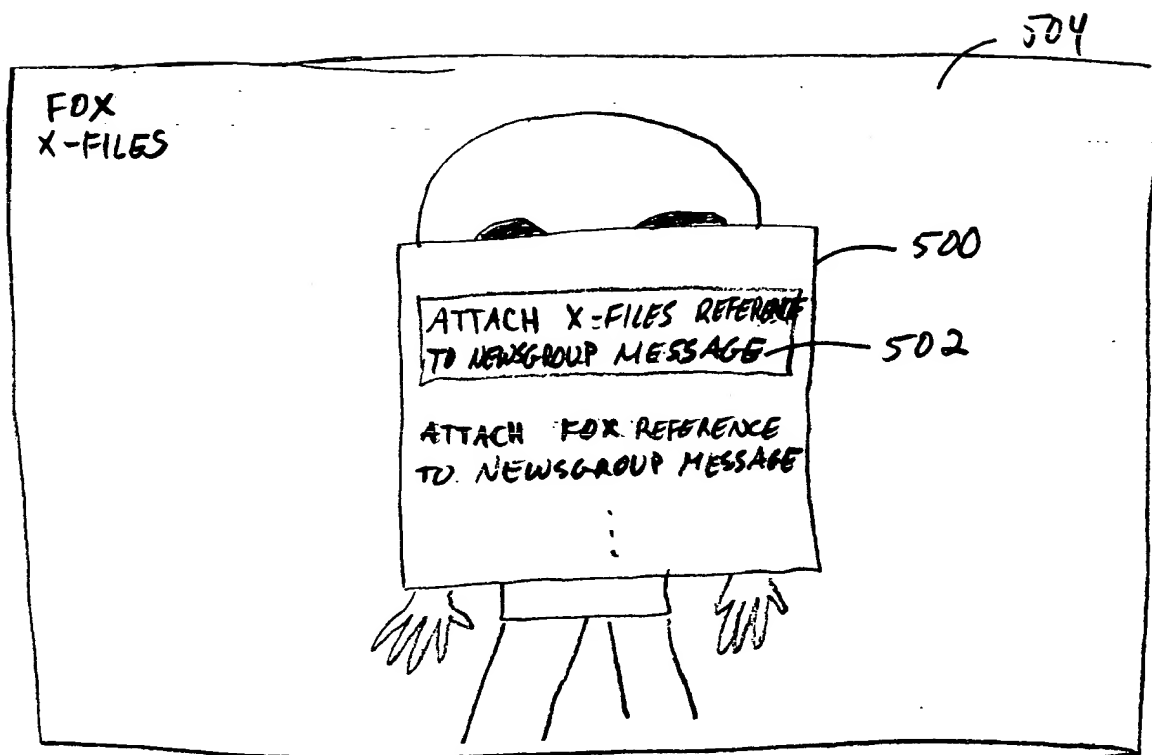 504
FOX
X-FILES
500
ATTACH X-FILES REFERENCE
TO NEWSGROUP MESSAGE
502
ATTACH FOX REFERENCE
TO NEWSGROUP MESSAGE